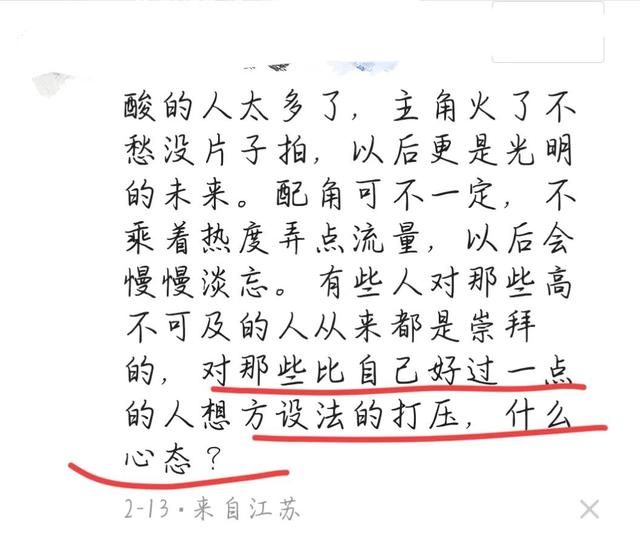 酸的人太多了，主角火了不
愁没片子拍，以后更是光明
的未来。配角可不一定，不
乘着热度弄点流量，以后会
慢慢淡忘。有些人对那些高
不可及的人从来都是崇拜
的，对那些比自己好过一点
的人想方设法的打压，什么
心态？
2-13·来自江苏